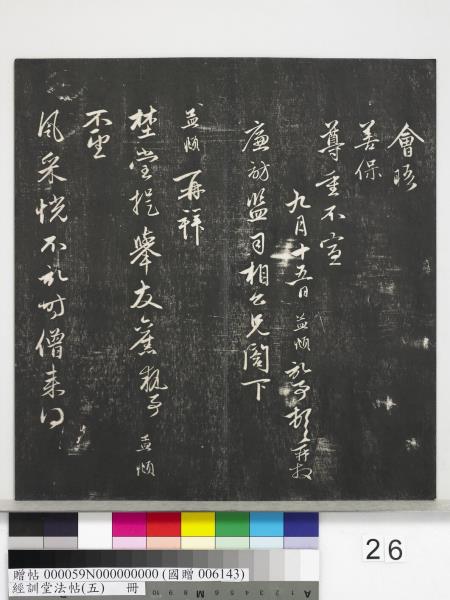 會晤
善保
尊重不宣
九月十五日 孟頫
廉訪監司相公兄閤下
孟頫 再拜
提舉友舊執事 孟頫
不
風采恍不 時僧來得
26
贈帖 000059N000000000 (國贈 006143)
經訓堂法帖(五) 冊